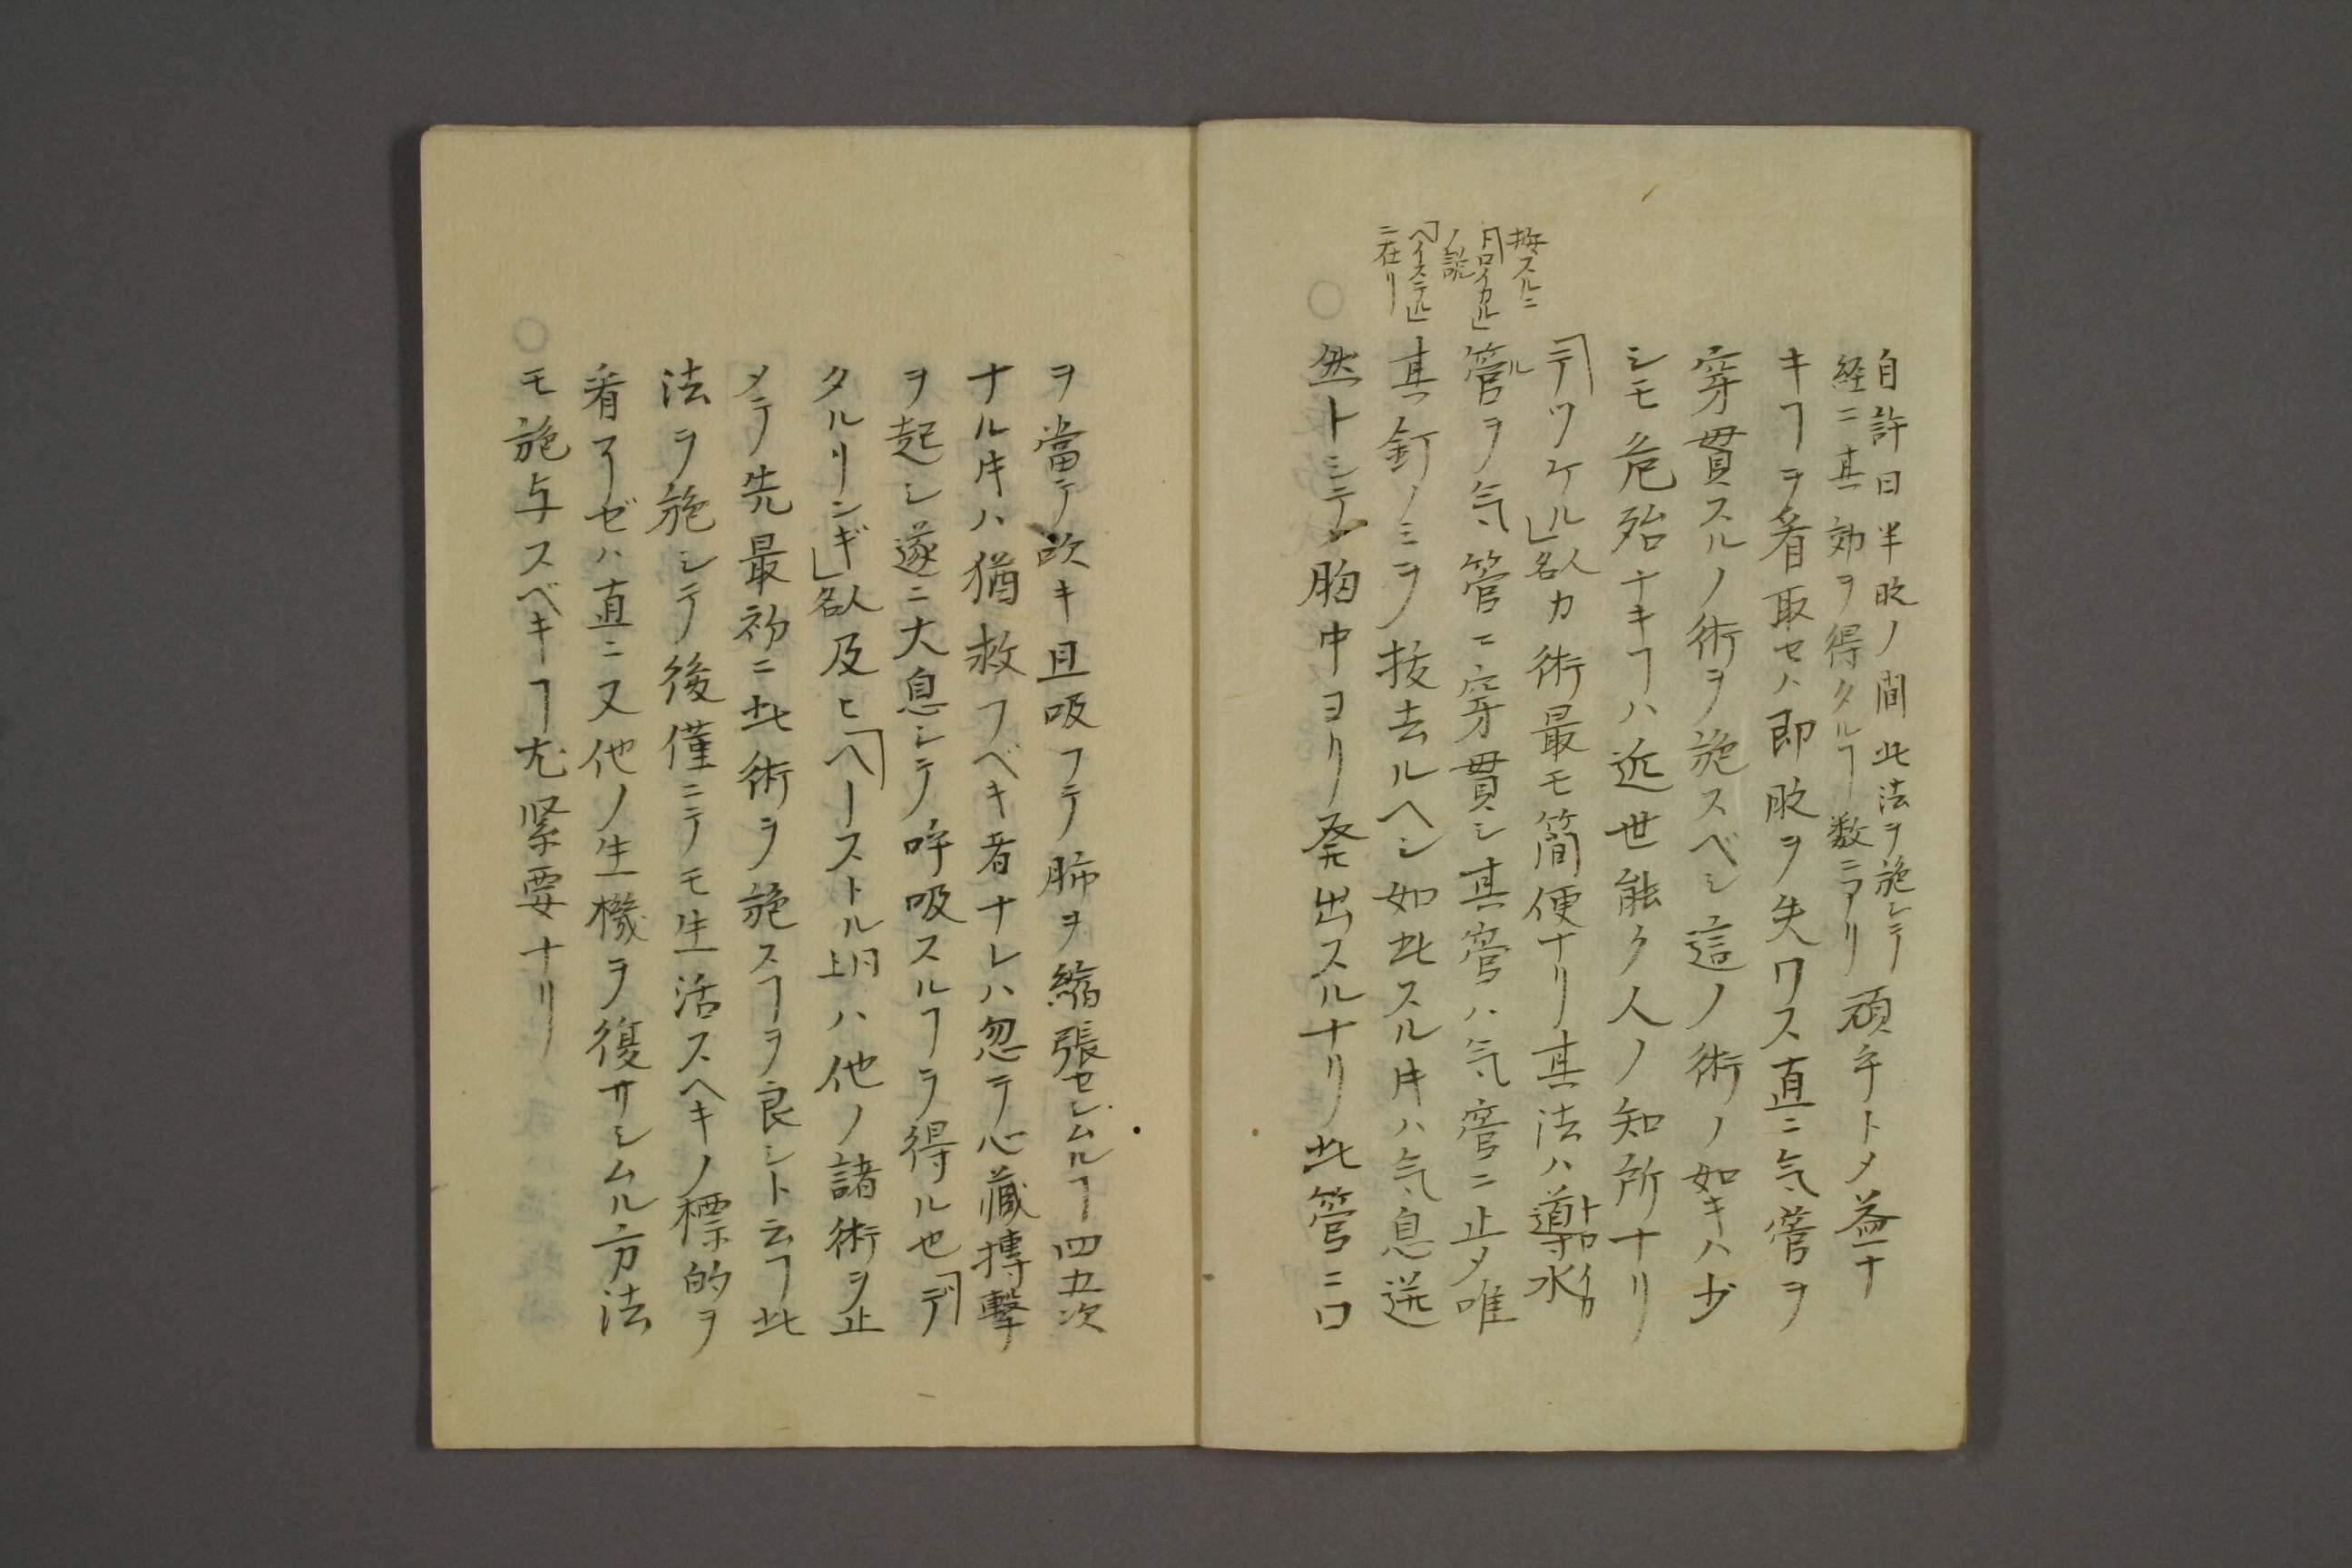 自許日半時ノ間此法ヲ施シテ
経ニ其効ヲ得タルヿ数ニアリ
頑乎トメ益ナ
キヿヲ看取セハ即時ヲ失ワス直ニ気管ヲ
穿貫スルノ術ヲ施スベシ這ノ術ノ如キハ少
シモ危殆ナキヿハ近世能ク人ノ知所ナリ
「デツケル」人名カ術最モ簡便ナリ其法ハ導水
トロイカル
管ヲ気管ニ穿貫シ其管ハ気管ニ止メ唯
其釘ノミヲ抜去ルヘシ如此スル片ハ気息迸
然トシテ胸中ヨリ発出スルナリ此管ニ口
按スルニ
「トロイカル」
ノ説
「ヘイステル」
ニ在リ
ヲ當テ吹キ且吸フテ肺ヲ縮張セシムルヿ四五次
ナル片ハ猶救フベキ者ナレハ忽テ心蔵搏撃
ヲ起シ遂ニ大息シテ呼吸スルヿヲ得ル也「デ
タルリンギ」人名及ヒ「ヘーストル同上ハ他ノ諸術ヲ止
メテ先最初ニ此術ヲ施スヿヲ良シト云フ此
法ヲ施シテ後僅ニテモ生活スヘキノ標的ヲ
看アゼハ直ニ又他ノ生機ヲ復サシムル方法
モ施与スベキヿ尤緊要ナリ